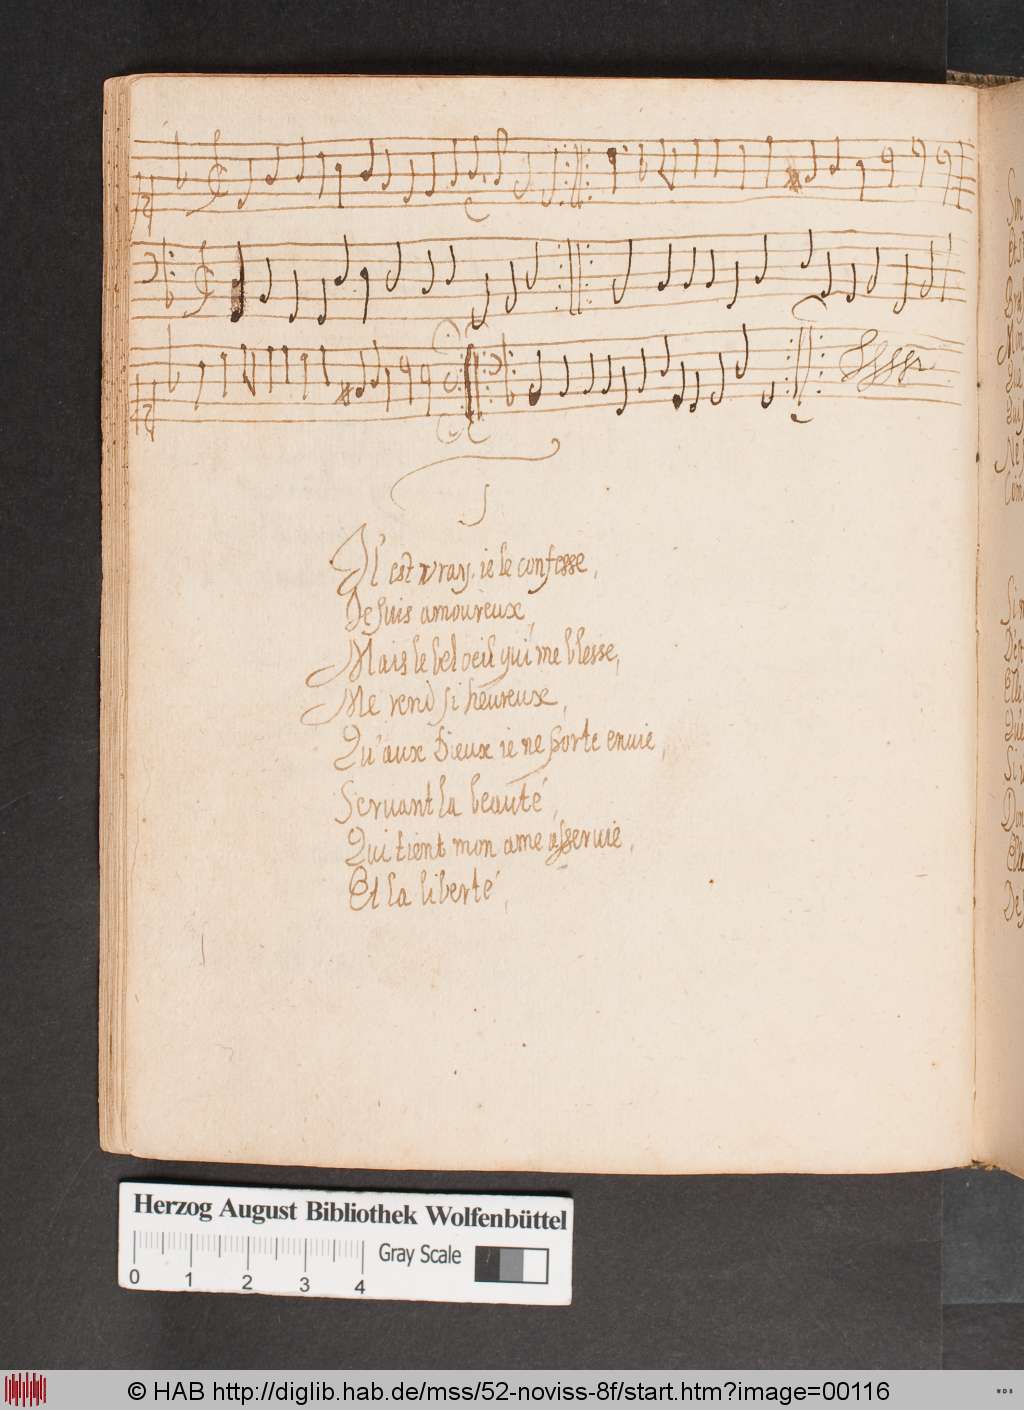 Il est vray, ie le confesse,
Je suis amoureux,
Mais le bel oeil qui me blesse,
Me rend si heureux,
Qu'aux Dieux ie ne porte enuie,
Seruant la beauté,
Qui tient mon ame asseruie,
Et la liberté,
Herzog August Bibliothek Wolfenbüttel
Gray Scale
0 1 2 3 4
© HAB http://diglib.hab.de/mss/52-noviss-8f/start.htm?image=00116